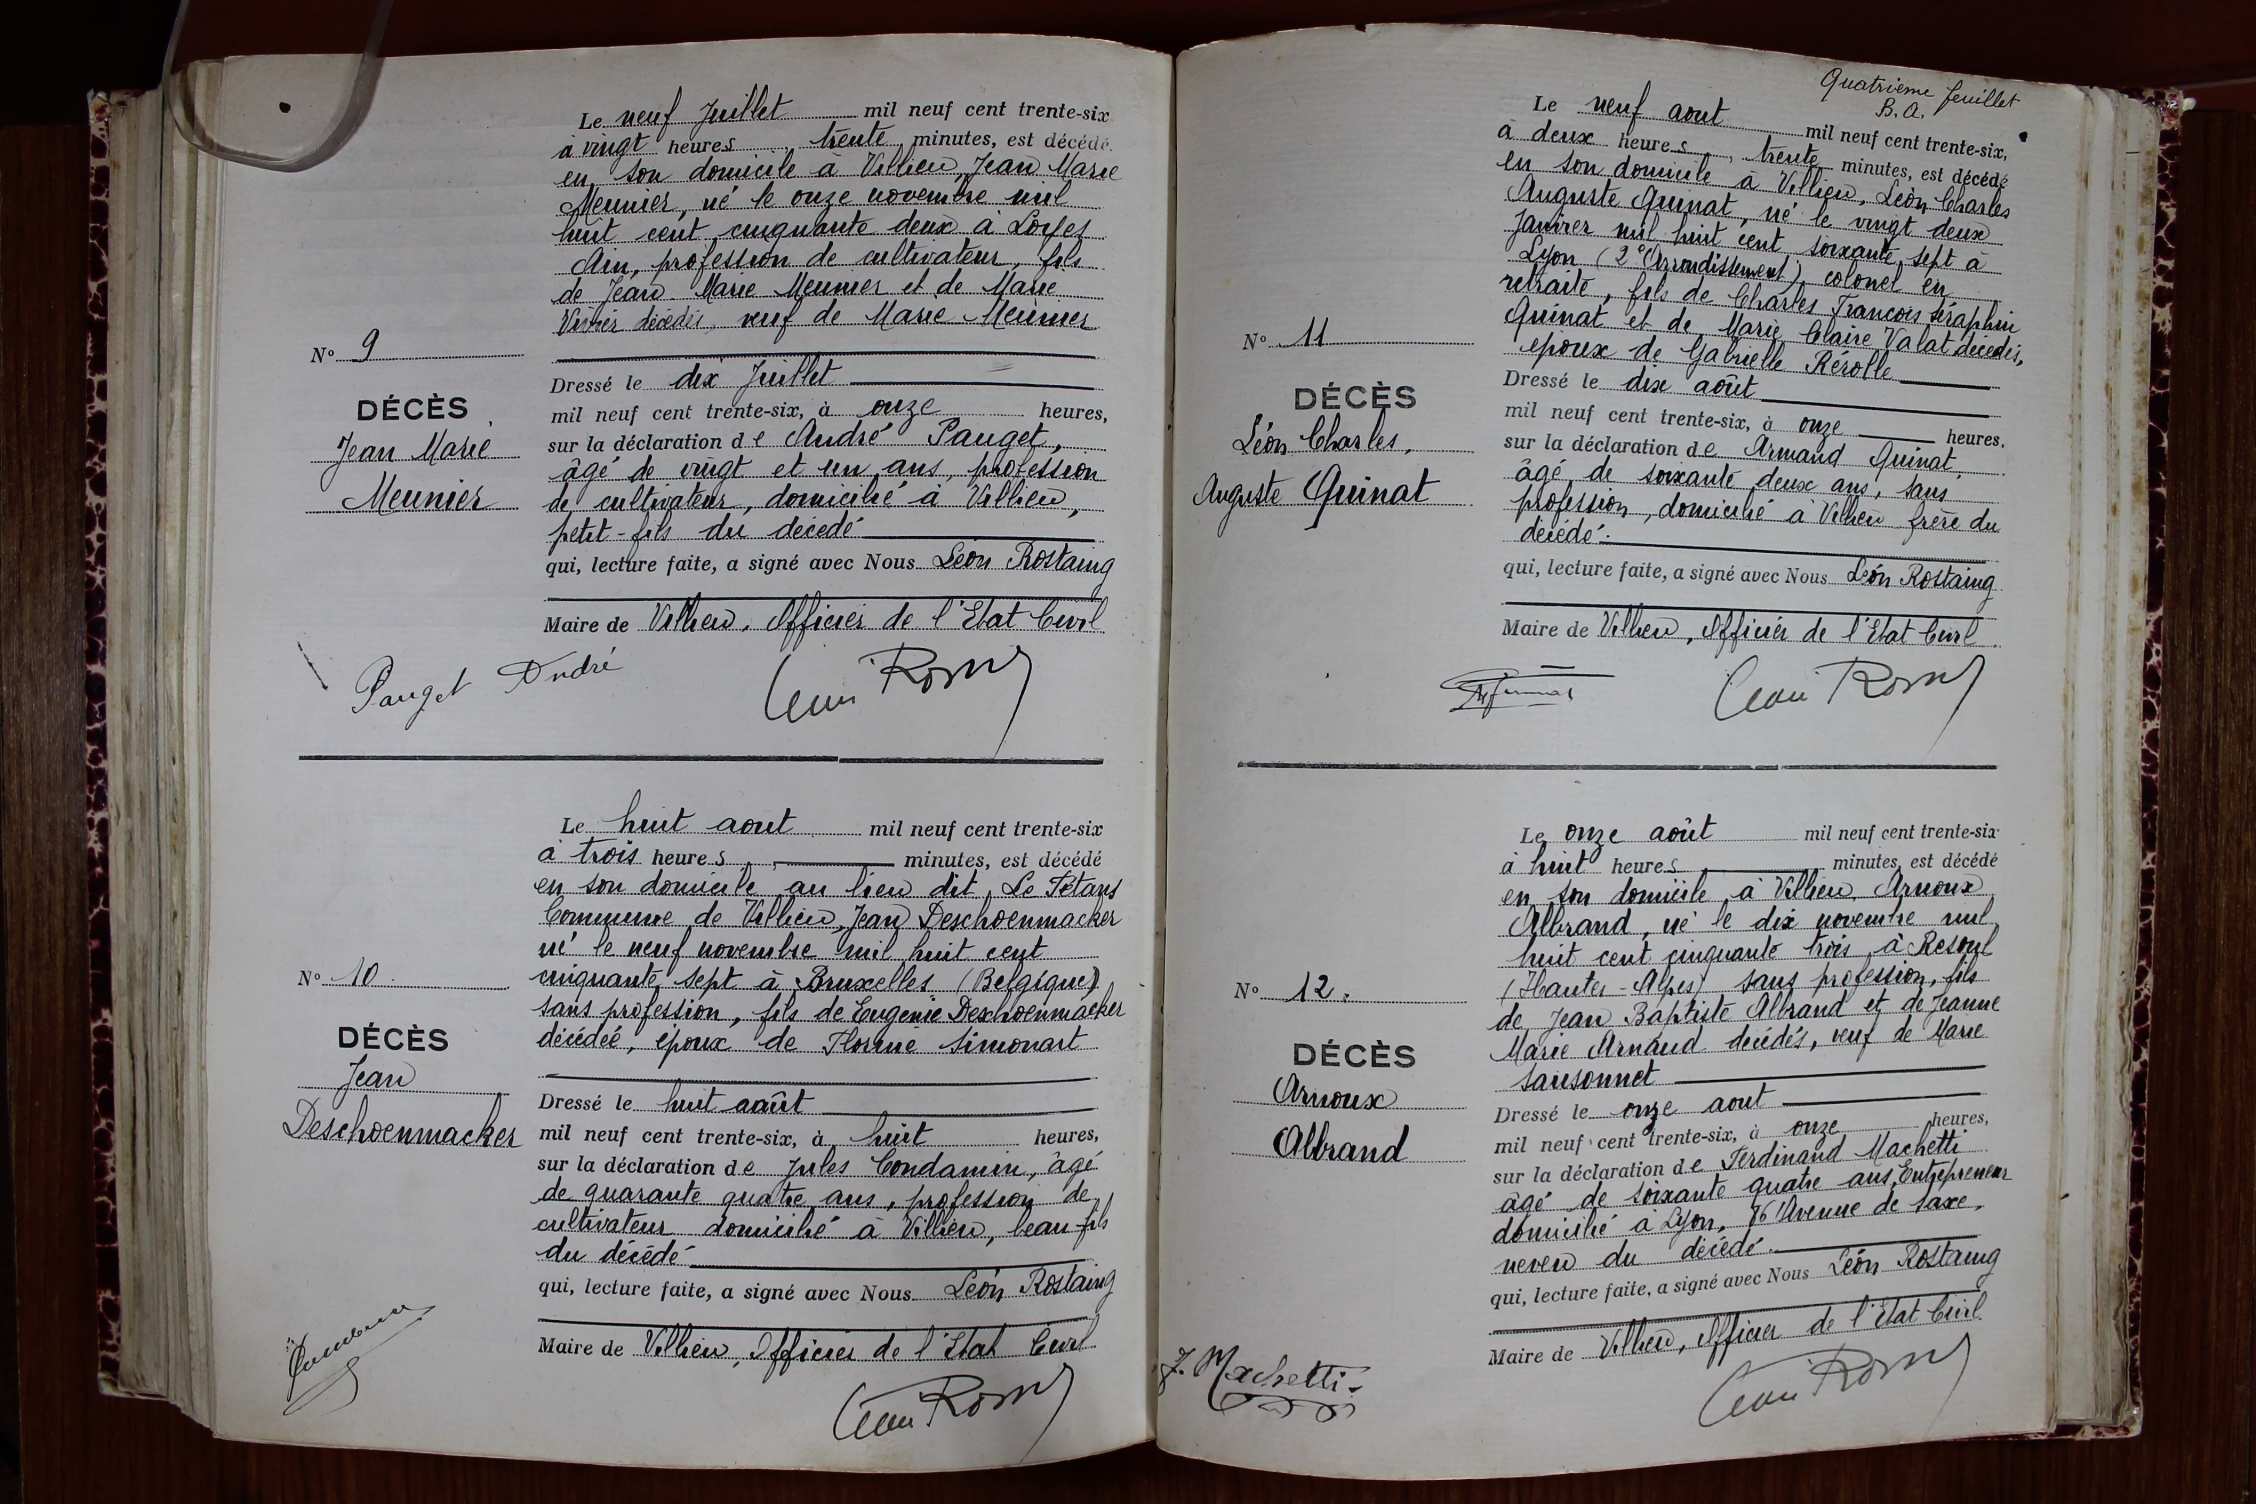 Le neuf Juillet mil neuf cent trente-six
à vingt heures trente minutes, est décédé
en son domicile à Villieu, Jean Marie
Meunier, né le onze novembre mil
huit cent cinquante deux à Loyes
Ain, profession de cultivateur, fils
de Jean Marie Meunier et de Marie
décédés, veuf de Marie Meunier
N° 9
DÉCÈS
Jean Marie
Meunier
Dressé le dix Juillet
mil neuf cent trente-six, à onze heures,
sur la déclaration de André Pauget,
âgé de vingt et un ans, profession
de cultivateur, domicilié à Villieu,
petit-fils du décédé
qui, lecture faite, a signé avec Nous Léon Rostaing
Maire de Villieu, Officier de l'Etat Civil
Pauget André
Le huit aout mil neuf cent trente-six
à trois heures, minutes, est décédé
en son domicile au lieu dit Le Fétans
Commune de Villieu, Jean Deschoenmacker
né le neuf novembre mil huit cent
cinquante sept à Bruxelles (Belgique)
sans profession, fils de Eugénie Deschoenmacker
décédée, époux de Florine Simonart
N° 10.
DÉCÈS
Jean
Deschoenmacker
Dressé le huit août
mil neuf cent trente-six, à huit heures,
sur la déclaration de Jules Condamin, âgé
de quarante quatre ans, profession de
cultivateur domicilié à Villieu, beau-fils
du décédé
qui, lecture faite, a signé avec Nous Léon Rostaing
Maire de Villieu, Officier de l'Etat Civil
Quatrieme feuillet
B. A.
Le neuf aout mil neuf cent trente-six,
à deux heures, trente minutes, est décédé
en son domicile à Villieu, Léon Charles
Auguste Quinat, né le vingt deux
Janvier mil huit cent soixante sept à
Lyon (2e Arrondissement) colonel en
retraite, fils de Charles Francois Séraphin
Quinat et de Marie Claire Valat décédés,
epoux de Gabrielle Rérolle
N° 11
DÉCÈS
Léon Charles,
Auguste Quinat
Dressé le dix août
mil neuf cent trente-six, à onze heures,
sur la déclaration de Armand Quinat,
âgé de soixante deux ans, sans
profession, domicilié à Villieu frère du
décédé.
qui, lecture faite, a signé avec Nous Léon Rostaing
Maire de Villieu, Officier de l'Etat Civil
Le onze août mil neuf cent trente-six
à huit heures minutes, est décédé
en son domicile à Villieu, Arnoux
Albrand, né le dix novembre mil
huit cent cinquante trois à Resoul
(Hautes-Alpes) sans profession, fils
de Jean Baptiste Albrand et de Jeanne
Marie Arnaud décédés, veuf de Marie
Sansonnet
N° 12.
DÉCÈS
Arnoux
Albrand
Dressé le onze aout
mil neuf cent trente-six, à onze heures,
sur la déclaration de Ferdinand Machetti
âgé de soixante quatre ans, Entrepreneur
domicilié à Lyon, 76 Avenue de Saxe,
neveu du décédé.
qui, lecture faite, a signé avec Nous Léon Rostaing
Maire de Villieu, Officier de l'Etat Civil
F. Machetti